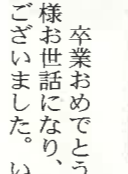 卒業おめでとう
様お世話になり、
ございました。い